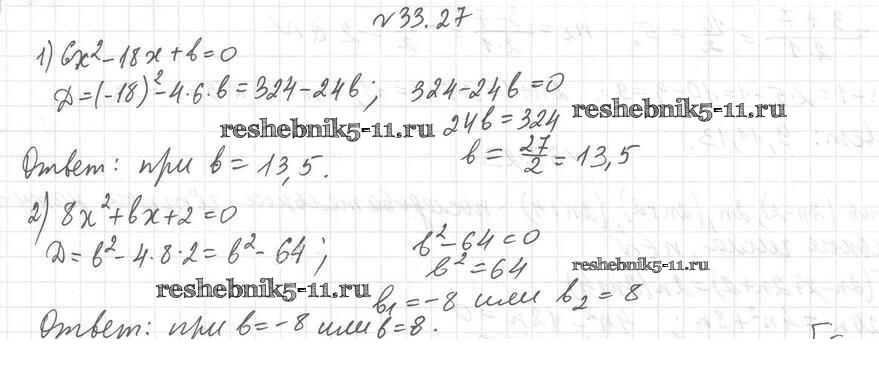 №33.27
1) 6x² - 18x + b = 0
D = (-18)² - 4·6·b = 324 - 24b; 324 - 24b = 0
reshebnik5-11.ru 24b = 324 reshebnik5-11.ru
Ответ: при b = 13,5. b = 27/2 = 13,5
2) 8x² + bx + 2 = 0
D = b² - 4·8·2 = b² - 64; b² - 64 = 0
b² = 64 reshebnik5-11.ru
reshebnik5-11.ru b₁ = -8 или b₂ = 8
Ответ: при b = -8 или b = 8.